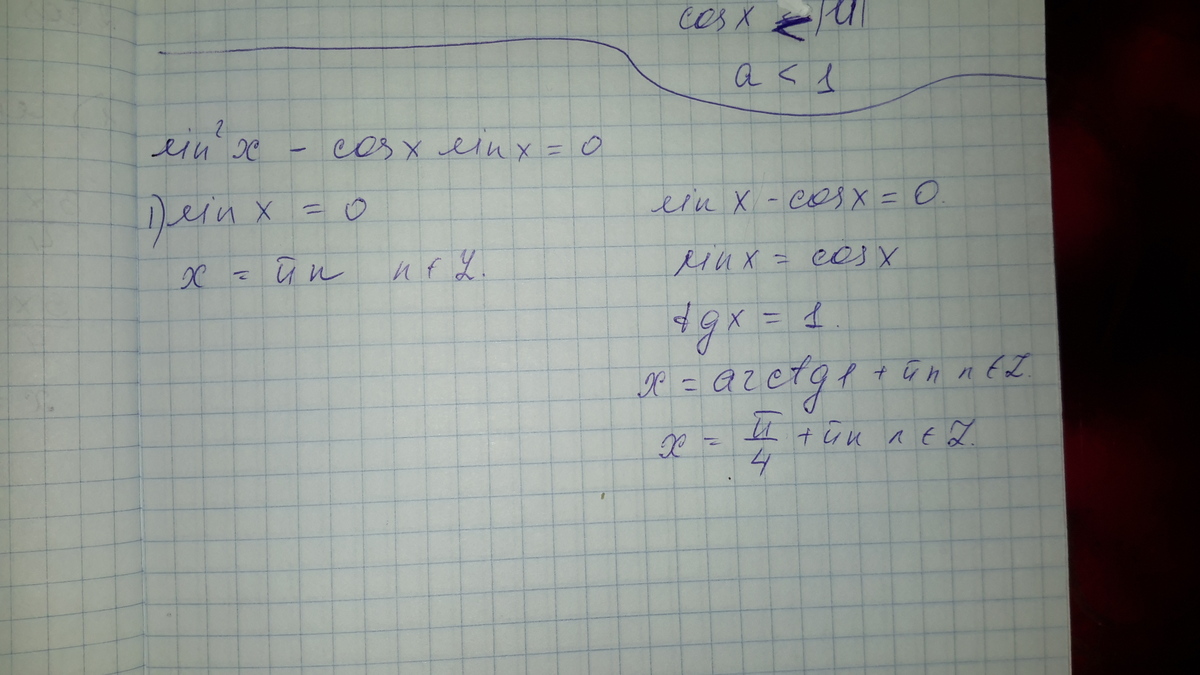 cos x ≤ |1|
a < 1
sin² x - cos x sin x = 0
1) sin x = 0
x = πn n ∈ Z.
sin x - cos x = 0.
sin x = cos x
tg x = 1.
x = arctg 1 + πn n ∈ Z.
x = π/4 + πn n ∈ Z.